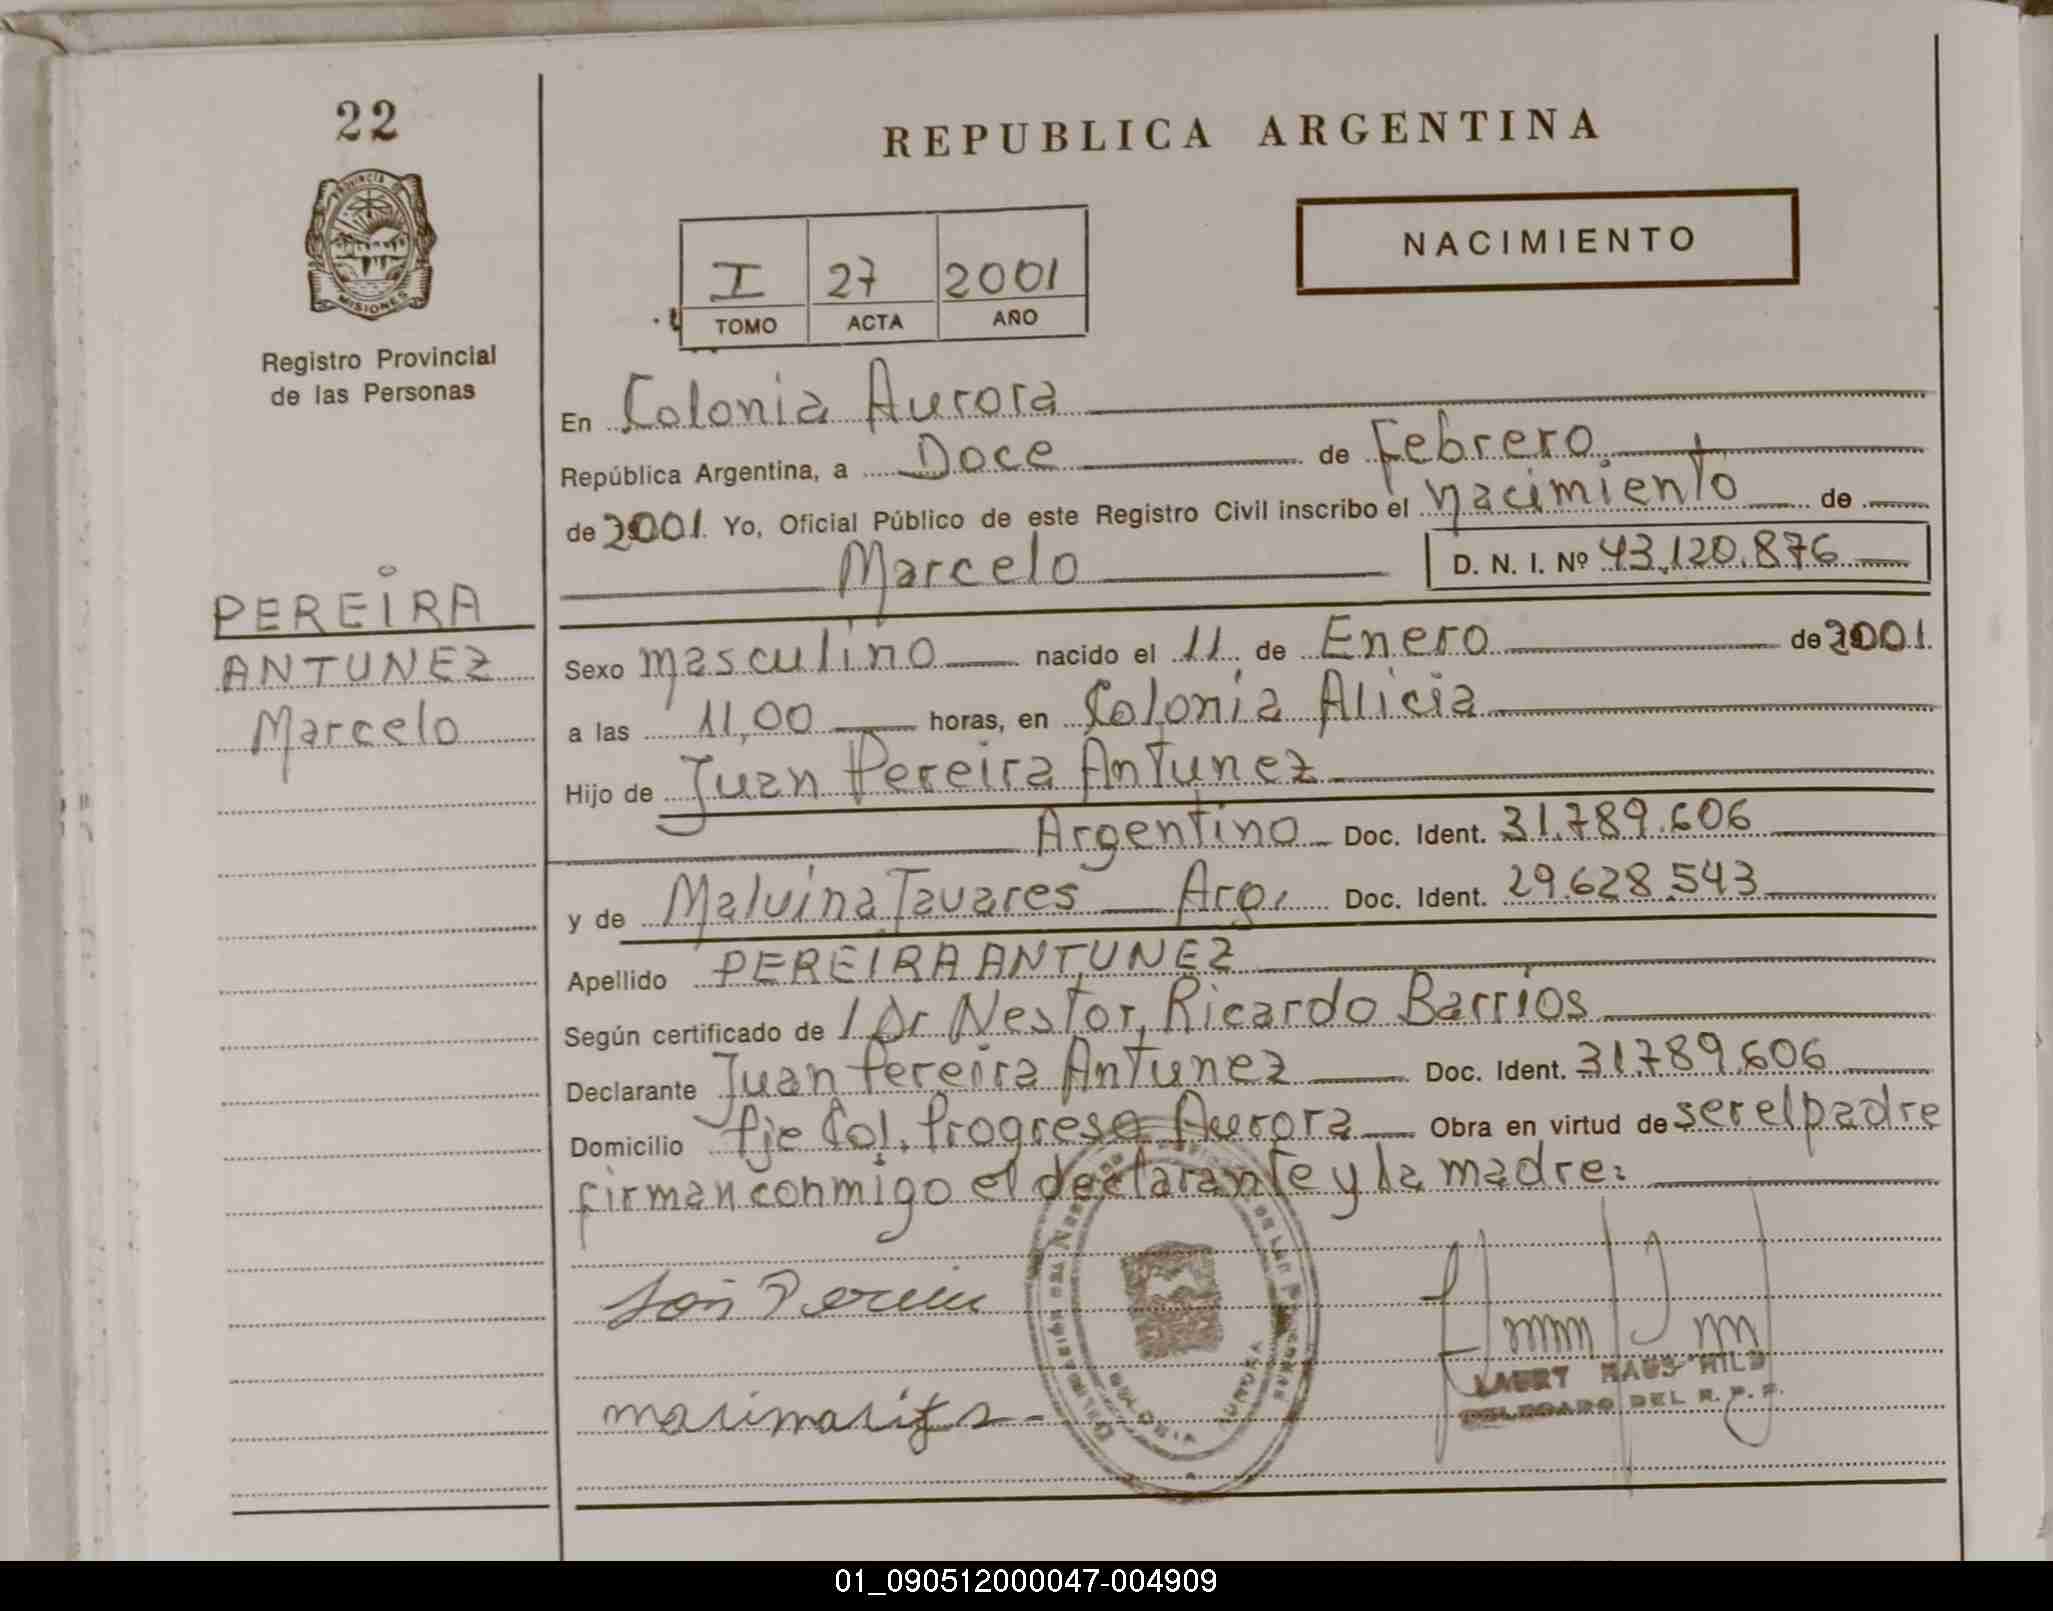 22
PROVINCIA DE
MISIONES
Registro Provincial
de las Personas
PEREIRA
ANTUNEZ
Marcelo
REPUBLICA ARGENTINA
NACIMIENTO
I 27 2001
TOMO ACTA AÑO
En Colonia Aurora
República Argentina, a Doce de Febrero
de 2001. Yo, Oficial Público de este Registro Civil inscribo el nacimiento de
Marcelo D. N. I. Nº 43.120.876
Sexo masculino nacido el 11 de Enero de 2001.
a las 11,00 horas, en Colonia Alicia
Hijo de Juan Pereira Antunez
Argentino Doc. Ident. 31.789.606
y de Malvina Tavares Arg. Doc. Ident. 29.628.543
Apellido PEREIRA ANTUNEZ
Según certificado de / Dr Nestor, Ricardo Barrios
Declarante Juan Pereira Antunez Doc. Ident. 31.789.606
Domicilio Pje Col. Progreso Aurora Obra en virtud de ser el padre
firman conmigo el declarante y la madre:
DELEGADO DEL R. P. P.
01_090512000047-004909